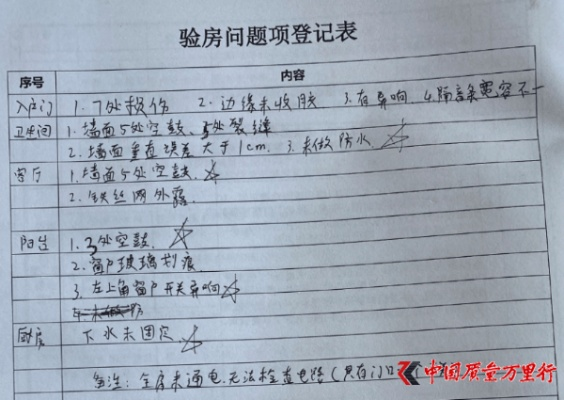 验房问题项登记表
序号 内容
入户门 1. 7处损伤 2. 边缘未收胶 3. 有异响 4. 隔音条宽窄不一
卫生间 1. 墙面5处空鼓, 5处裂缝
2. 墙面垂直误差大于1cm. 3. 未做防水
客厅 1. 墙面5处空鼓
2. 铁丝网外露
阳台 1. 3处空鼓
2. 窗户玻璃划痕
3. 左上角窗户开关异响
厨房 下水未固定
备注: 全房未通电, 无法检查电路(只有门口
中国质量万里行